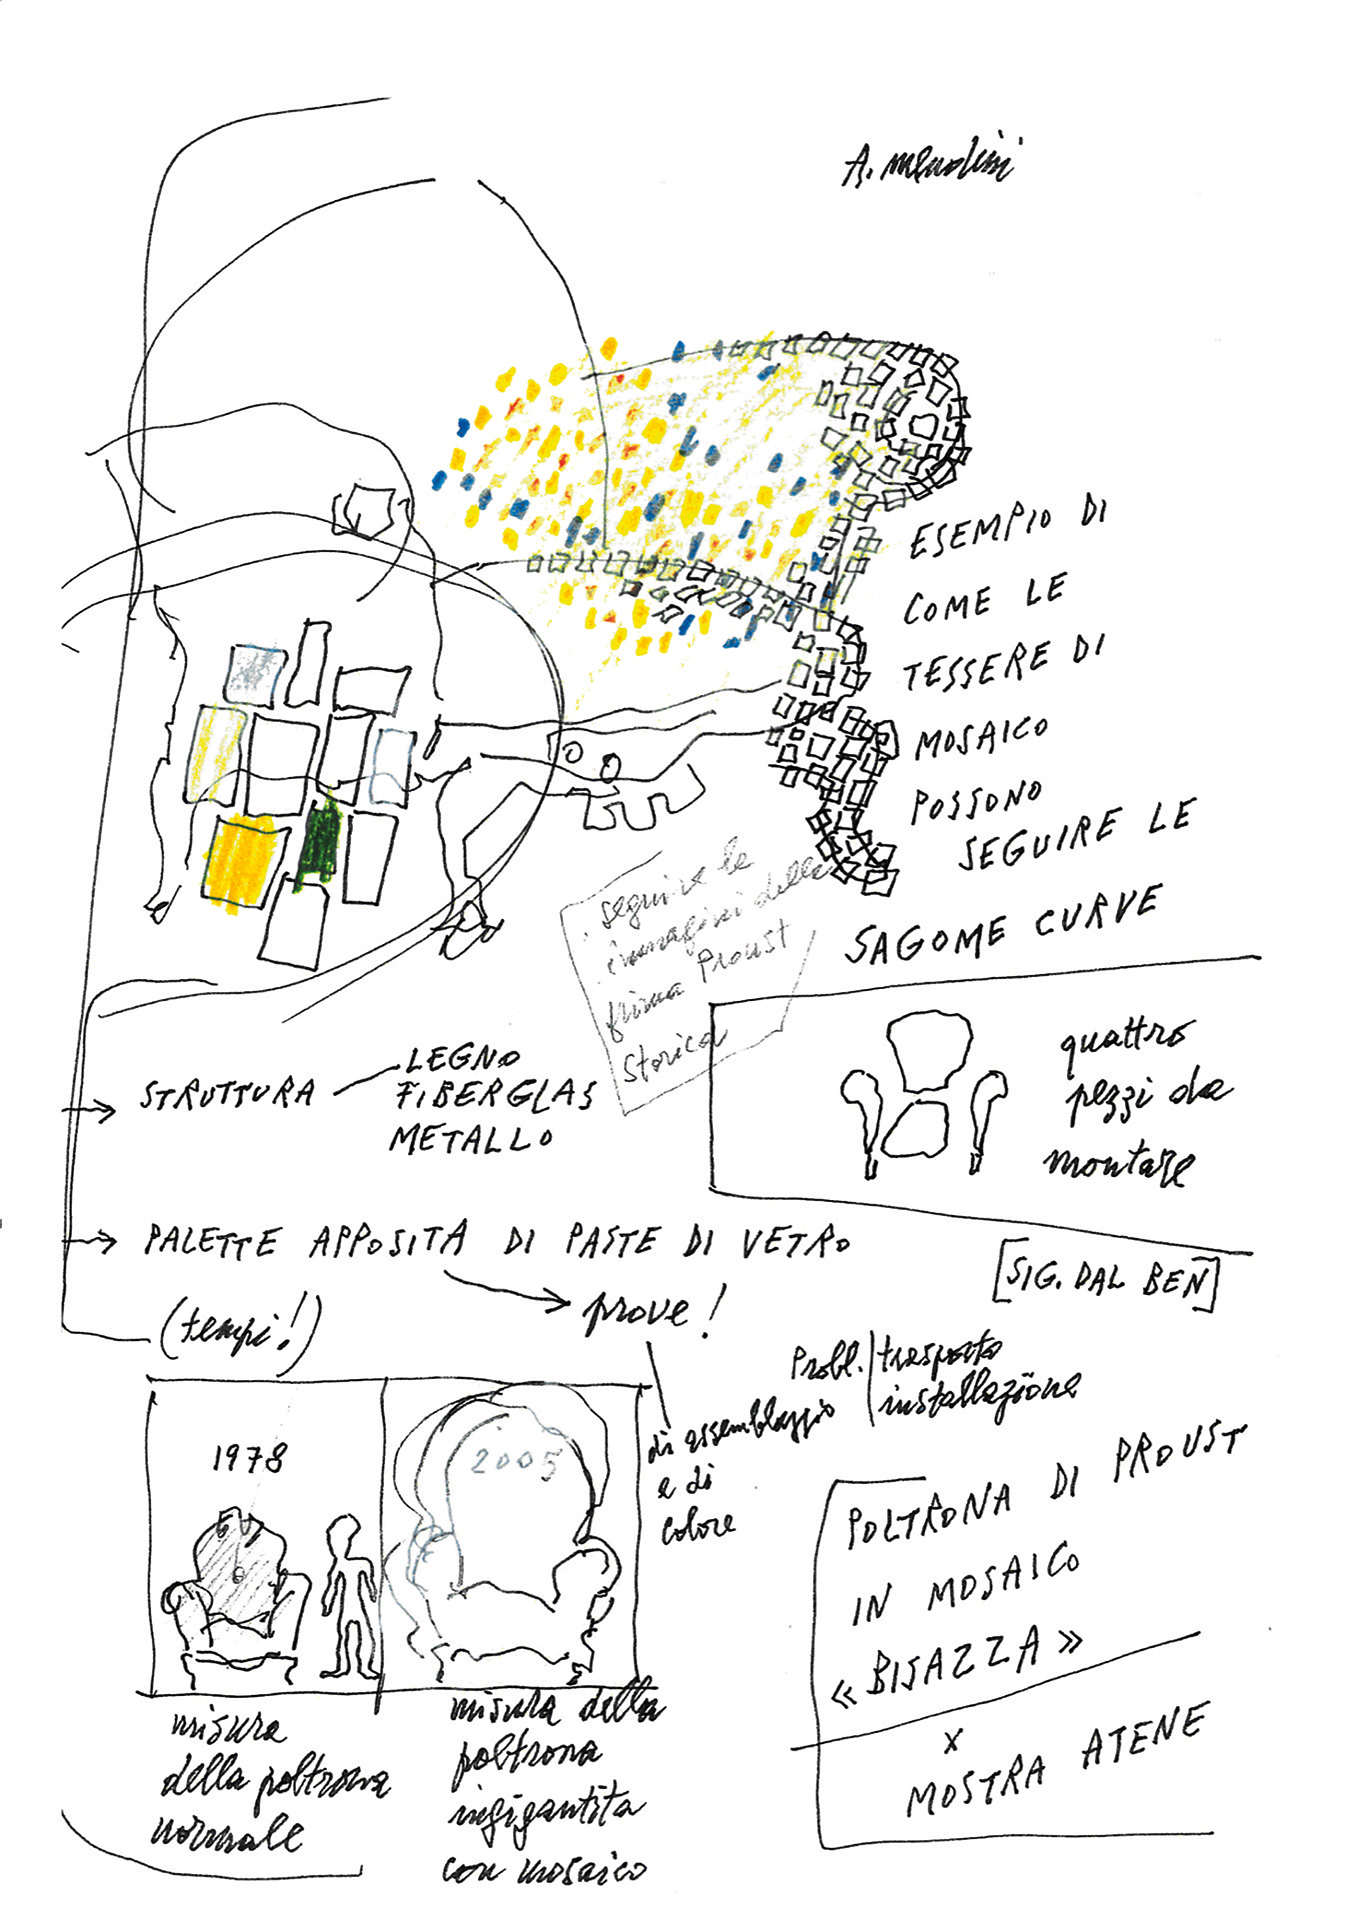 A. Mendini
ESEMPIO DI
COME LE
TESSERE DI
MOSAICO
POSSONO
SEGUIRE LE
SAGOME CURVE
seguire le
immagini della
prima Proust
storica
quattro
pezzi da
montare
STRUTTURA
LEGNO
FIBERGLAS
METALLO
PALETTE APPOSITA DI PASTE DI VETRO
(tempi!)
prove!
[SIG. DAL BEN]
Probl. trasporto
installazione
di assemblaggio
e di
colore
1978
2005
misura
della poltrona
normale
misura della
poltrona
ingigantita
con mosaico
POLTRONA DI PROUST
IN MOSAICO
«BISAZZA»
X
MOSTRA ATENE